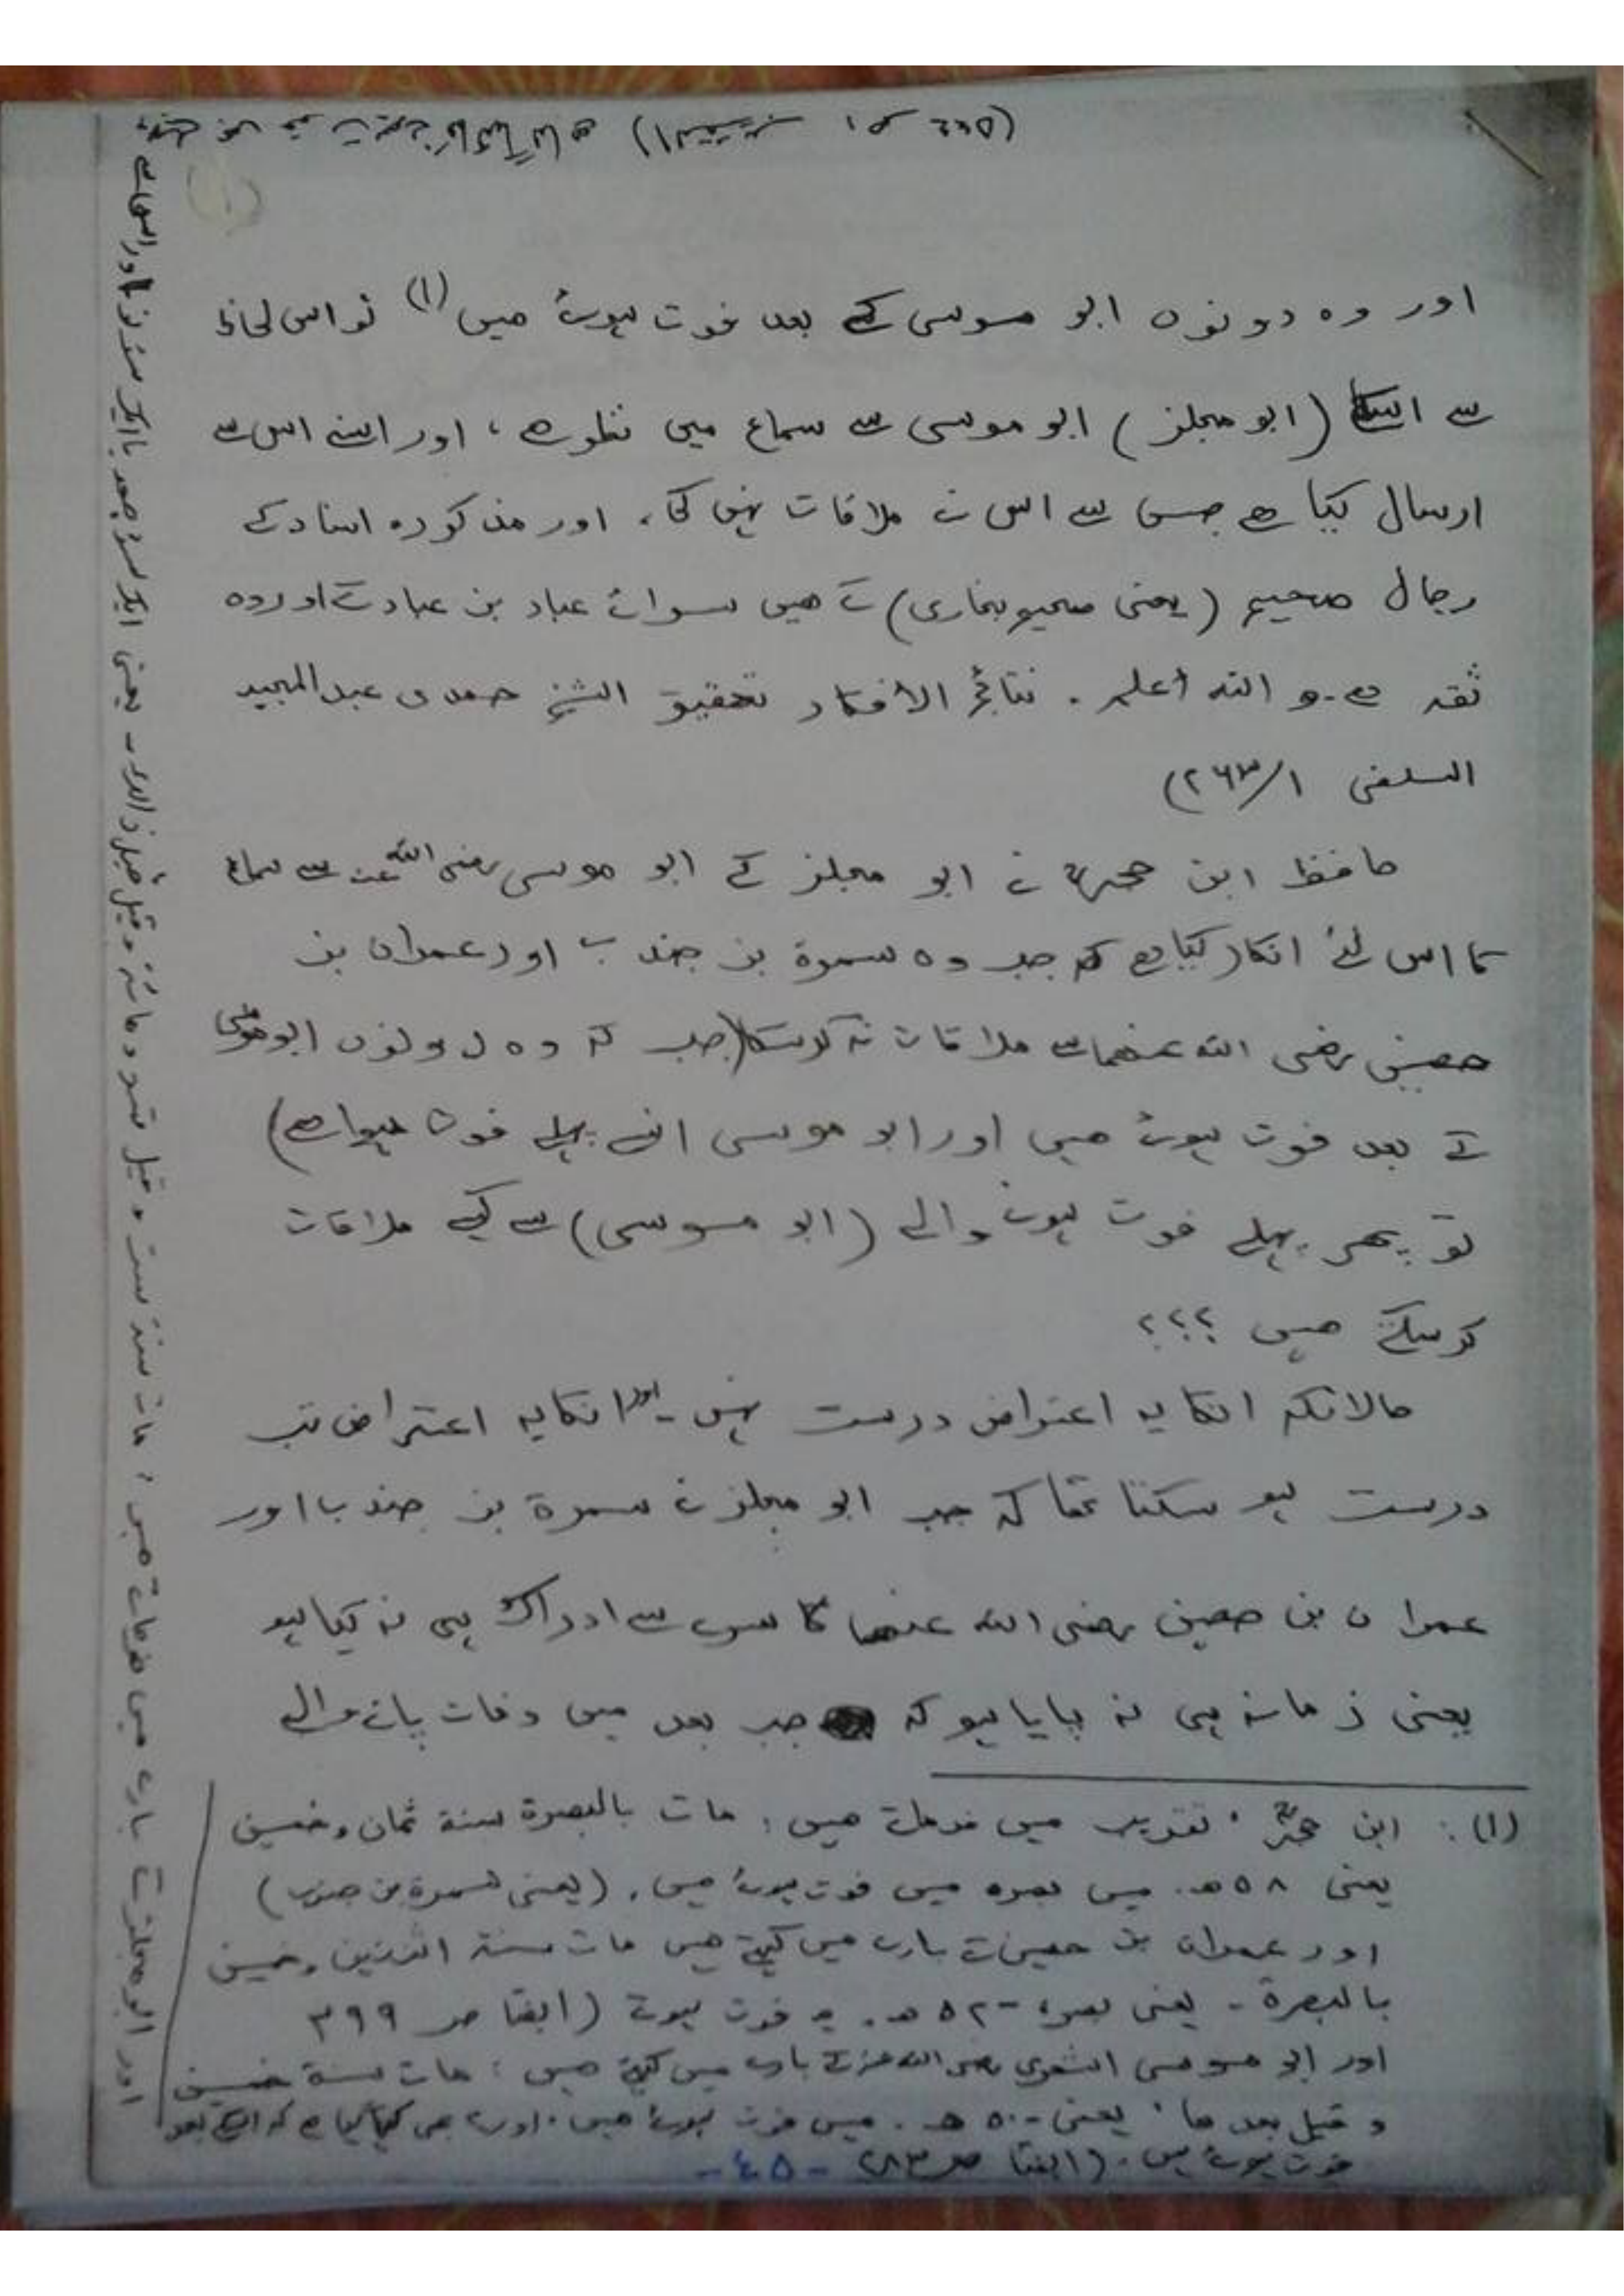 اور وہ دونوں ابو موسی کے بعد فوت ہوئے ہیں (۱) تو اس لحاظ
سے اسکا (ابو مجلز) ابو موسی سے سماع میں نظر ہے، اور اسنے اس سے
ارسال کیا ہے جس سے اس نے ملاقات نہیں کی، اور مذکورہ اسناد کے
رجال صحیح (یعنی صحیح بخاری) کے ہیں سوائے عباد بن عباد کے اور وہ
ثقہ ہے۔ و اللہ أعلم . نتائج الأفکار تحقیق الشیخ حمدی عبدالمجید
السلفی ۱/۲۶۳)
حافظ ابن حجرؒ نے ابو مجلز کے ابو موسی رضی اللہ عنہ سے سماع
کا اس لئے انکار کیا ہے کہ جب وہ سمرة بن جندب اور عمران بن
حصین رضی اللہ عنھما سے ملاقات نہ کر سکا (جب کہ وہ دونوں ابو موسی
کے بعد فوت ہوئے ہیں اور ابو موسی انسے پہلے فوت ہوا ہے)
تو پھر پہلے فوت ہونے والے (ابو موسی) سے کیسے ملاقات
کر سکتے ہیں ؟؟؟
حالانکہ انکا یہ اعتراض درست نہیں۔ اور انکا یہ اعتراض تب
درست ہو سکتا تھا کہ جب ابو مجلز نے سمرة بن جندب اور
عمران بن حصین رضی اللہ عنھما کا سرے سے ادراک ہی نہ کیا ہو
یعنی زمانہ ہی نہ پایا ہو کہ جب بعد میں وفات پانے والے
(۱): ابن حجرؒ تقریب میں فرماتے ہیں: مات بالبصرة سنة ثمان وخمسین
یعنی ۵۸ ھ. میں بصرہ میں فوت ہوئے ہیں. (یعنی سمرة بن جندب)
اور عمران بن حصین کے بارے میں کہتے ہیں مات سنة اثنتین وخمسین
بالبصرة - یعنی بصرہ ۵۲ ھ. فوت ہوئے (ایضا صـ ۳۹۹
اور ابو موسی اشعری رضی اللہ عنہ کے بارے میں کہتے ہیں: مات سنة خمسین
و قیل بعدها، یعنی ۵۰ ھ. میں فوت ہوئے ہیں. اور یہ بھی کہا گیا ہے کہ اسکے بعد
فوت ہوئے ہیں. (ایضا صـ
-٤٥-
اور ابو مجلز کے بارے میں فرماتے ہیں: مات سنة ست وقیل تسع ومائة وقیل قبل ذالك - یعنی ایک سو چھ یا ایک سو نو اور